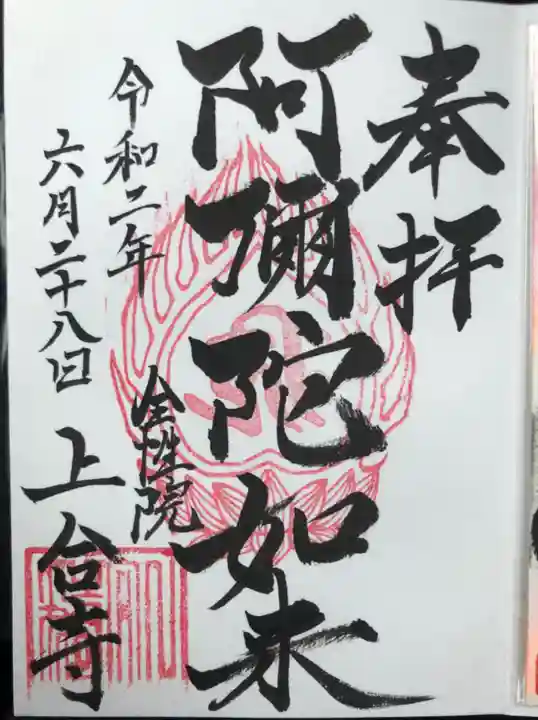 奉拝
阿彌陀如来
令和二年
六月二十八日
全性院
上台寺